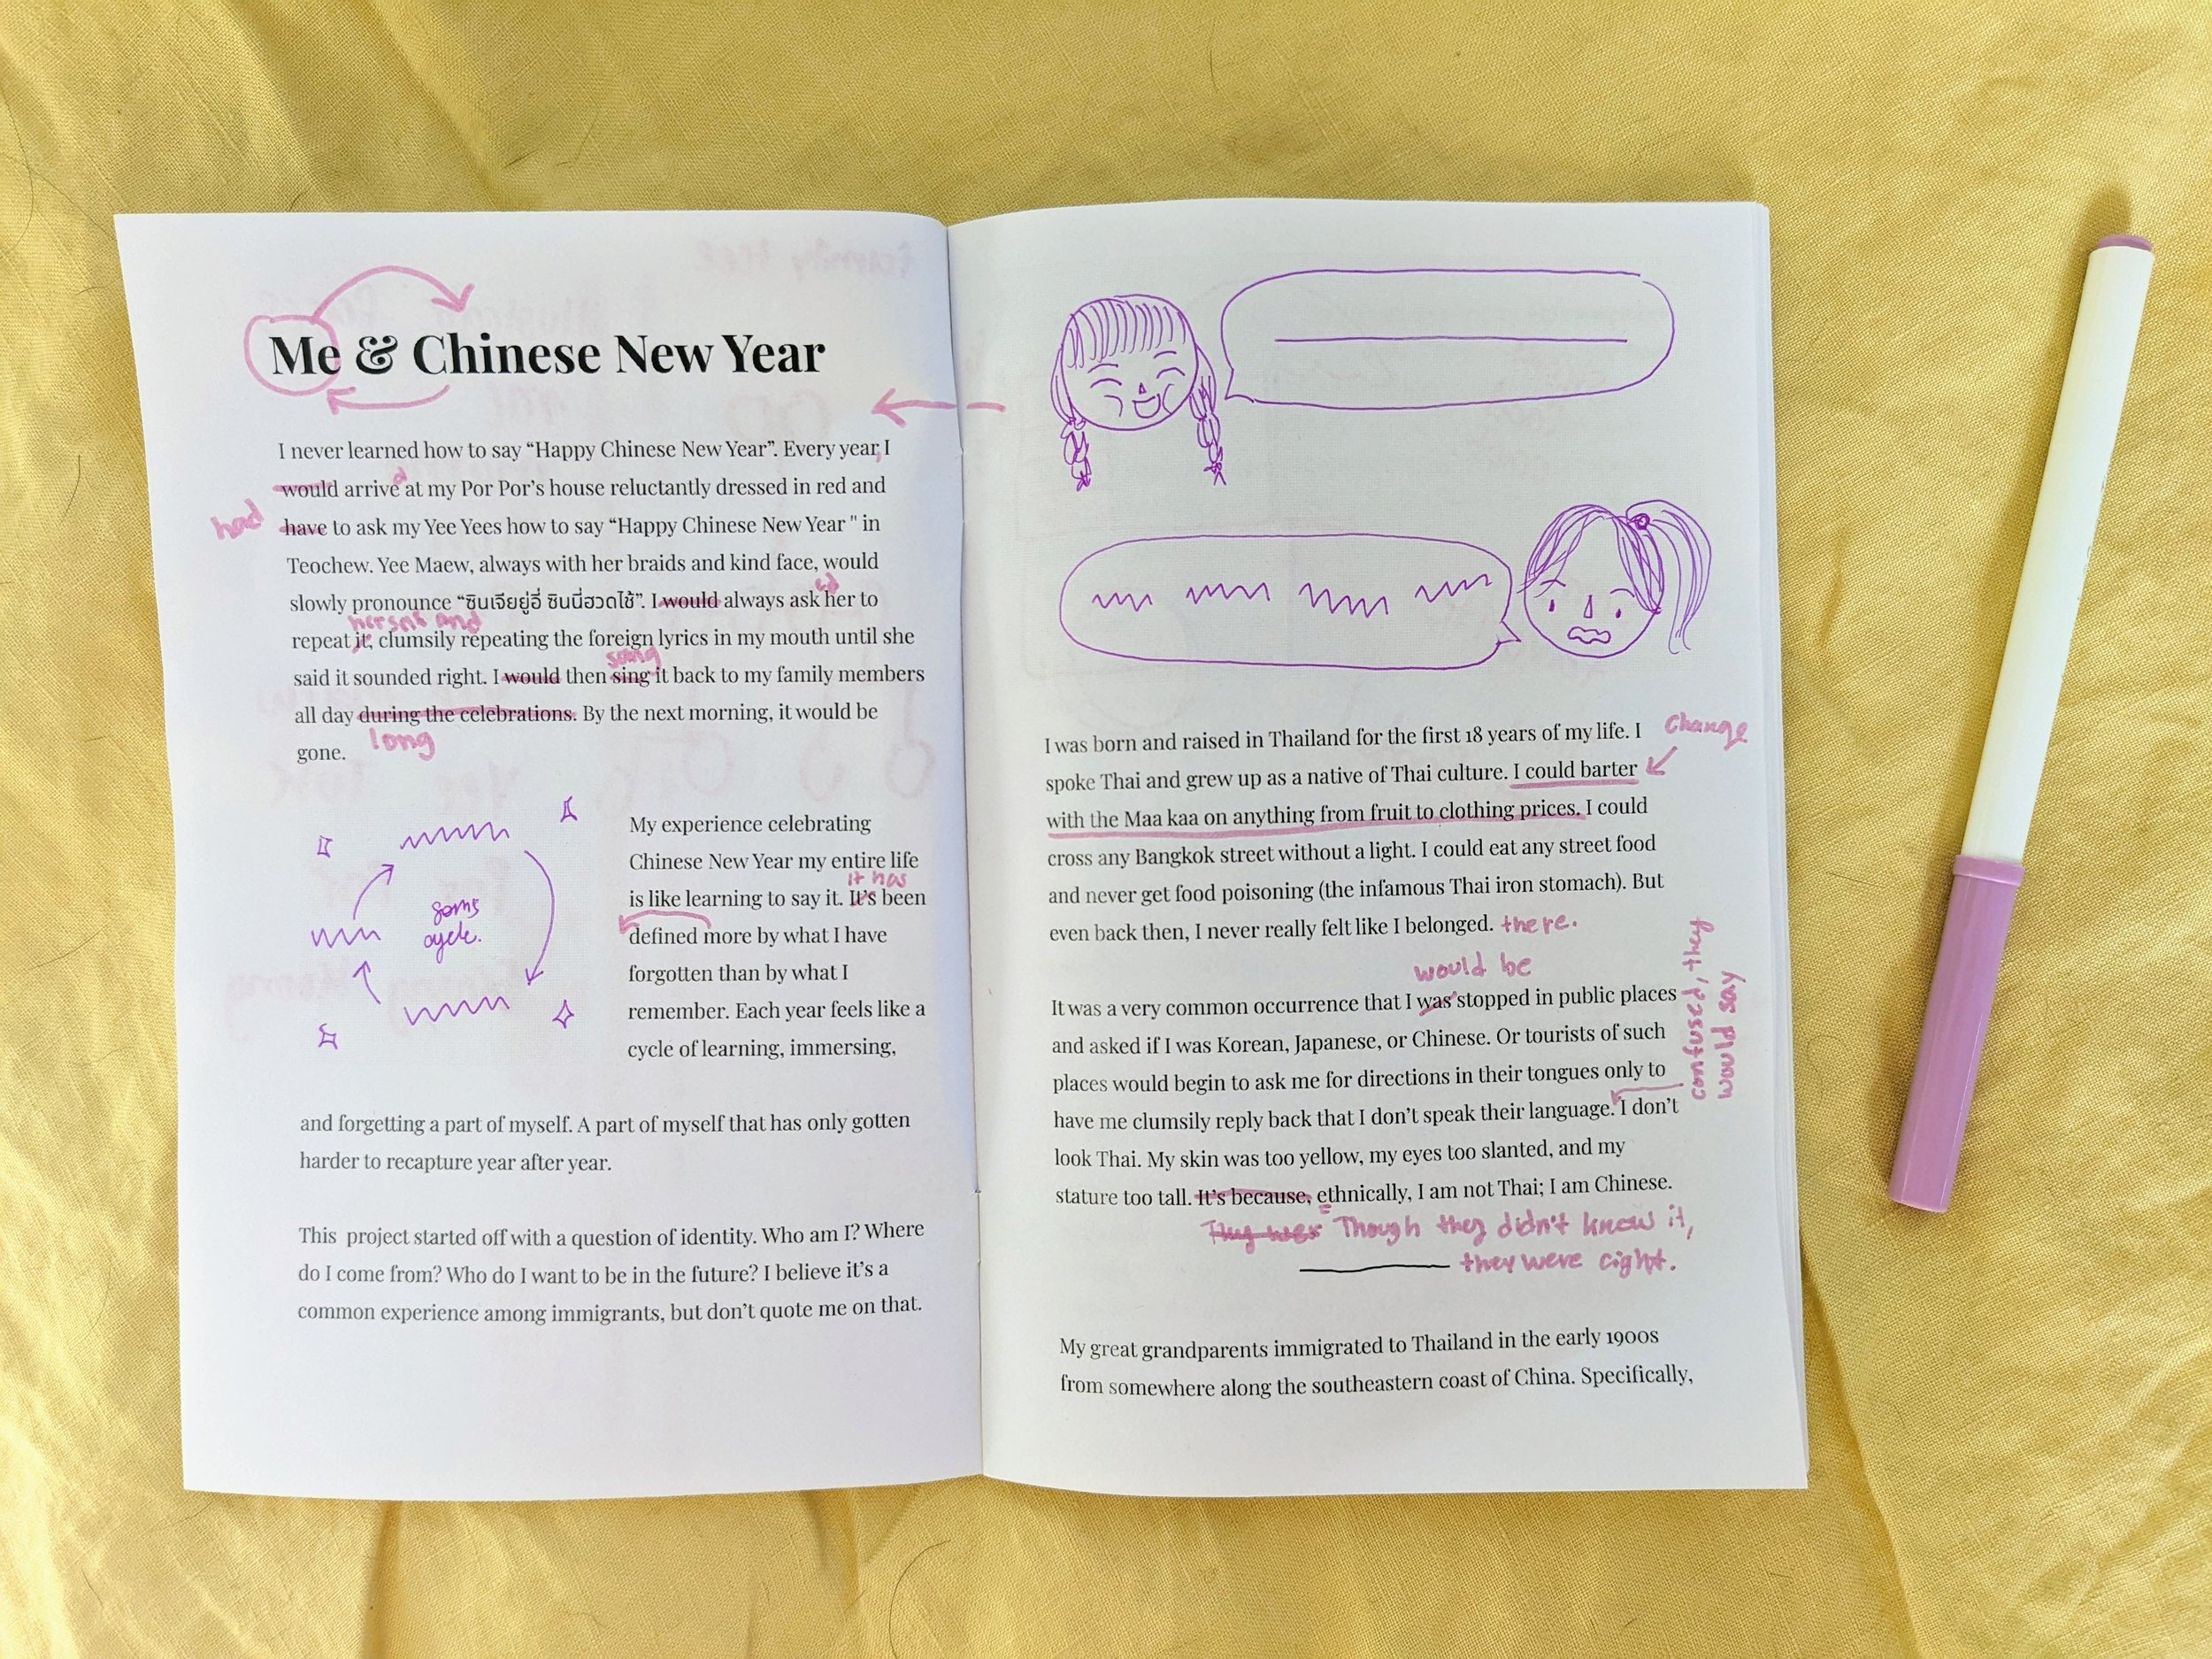 Me & Chinese New Year
I never learned how to say “Happy Chinese New Year”. Every year, I
would arrive d at my Por Por’s house reluctantly dressed in red and
had have to ask my Yee Yees how to say “Happy Chinese New Year " in
Teochew. Yee Maew, always with her braids and kind face, would
slowly pronounce “ซินเจียยู่อี่ ซินนี่ฮวดไช้”. I would always ask ed her to
repeat it, clumsily repeating the foreign lyrics in my mouth until she
and
said it sounded right. I would then sing it back to my family members
sang
all day during the celebrations. By the next morning, it would be
long
gone.
My experience celebrating
Chinese New Year my entire life
it has
is like learning to say it. It’s been
defined more by what I have
forgotten than by what I
remember. Each year feels like a
cycle of learning, immersing,
cycle.
and forgetting a part of myself. A part of myself that has only gotten
harder to recapture year after year.
This project started off with a question of identity. Who am I? Where
do I come from? Who do I want to be in the future? I believe it’s a
common experience among immigrants, but don’t quote me on that.
I was born and raised in Thailand for the first 18 years of my life. I
change
spoke Thai and grew up as a native of Thai culture. I could barter
with the Maa kaa on anything from fruit to clothing prices. I could
cross any Bangkok street without a light. I could eat any street food
and never get food poisoning (the infamous Thai iron stomach). But
even back then, I never really felt like I belonged. there.
would be
It was a very common occurrence that I was stopped in public places
and asked if I was Korean, Japanese, or Chinese. Or tourists of such
places would begin to ask me for directions in their tongues only to
have me clumsily reply back that I don’t speak their language. I don’t
confused, they
would say
look Thai. My skin was too yellow, my eyes too slanted, and my
stature too tall. It’s because, ethnically, I am not Thai; I am Chinese.
Though they didn't know it,
they were right.
My great grandparents immigrated to Thailand in the early 1900s
from somewhere along the southeastern coast of China. Specifically,